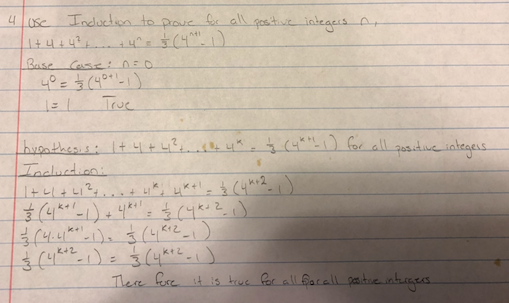 4 Use Induction to prove for all positive integers n,
1+4+4²+...+4ⁿ = 1/3(4ⁿ⁺¹-1)
Base Case: n=0
4⁰ = 1/3(4⁰⁺¹-1)
1=1 True
hypothesis: 1+4+4²+...+4ᵏ = 1/3(4ᵏ⁺¹-1) for all positive integers
Induction:
1+4+4²+...+4ᵏ+4ᵏ⁺¹ = 1/3(4ᵏ⁺²-1)
1/3(4ᵏ⁺¹-1)+4ᵏ⁺¹ = 1/3(4ᵏ⁺²-1)
1/3(4·4ᵏ⁺¹-1) = 1/3(4ᵏ⁺²-1)
1/3(4ᵏ⁺²-1) = 1/3(4ᵏ⁺²-1)
There fore it is true for all for all positive integers